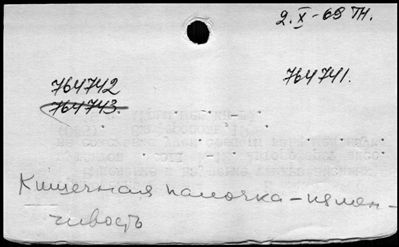 2.X-69 ТН.
764742
764741.
764743.
Кишечная палочка-измен-
чивость